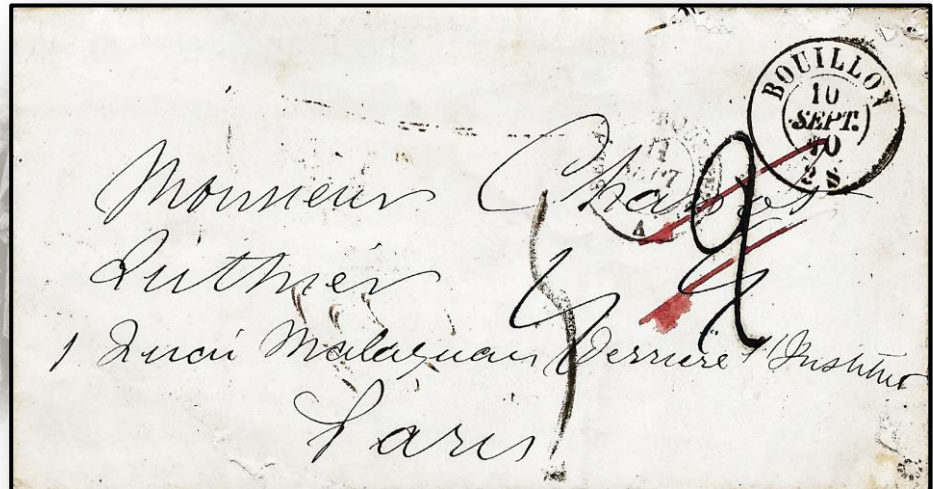 BOUILLON
10
SEPT.
2 S
Monsieur
Luthier
1 Quai Malaquais Derriere l'Institut
Paris